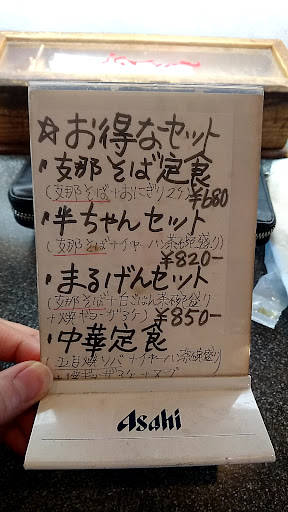 ☆お得なセット
・支那そば定食
(支那そば+おにぎり2ケ) ¥680
・半ちゃんセット
(支那そば+チャーハン茶碗盛り)
¥820-
・まるげんセット
(支那そば+白ごはん茶碗盛り
+焼ギョーザ3ケ) ¥850-
・中華定食
(五目焼ソバ+チャーハン茶碗盛り
Asahi